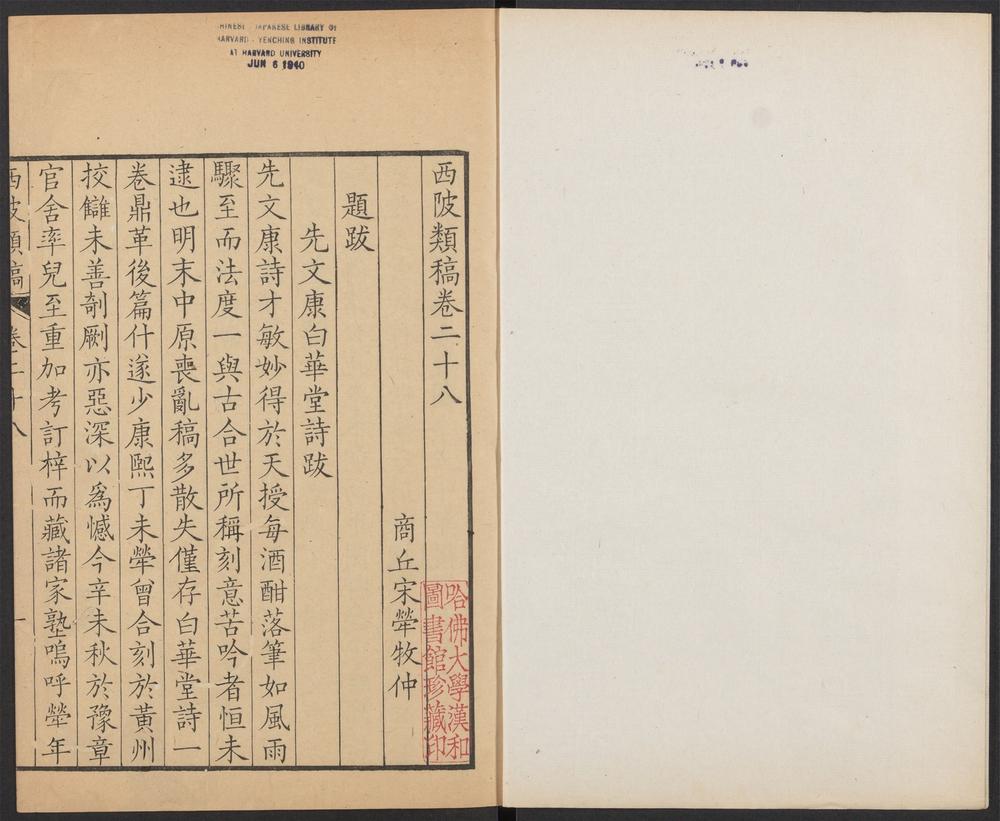 CHINESE - JAPANESE LIBRARY OF
HARVARD - YENCHING INSTITUTE
AT HARVARD UNIVERSITY
JUN 6 1940
西陂類稿卷二十八
商丘宋犖牧仲
題跋
先文康白華堂詩跋
先文康詩才敏妙得於天授每酒酣落筆如風雨
驟至而法度一與古合世所稱刻意苦吟者恒未
逮也明末中原喪亂稿多散失僅存白華堂詩一
卷鼎革後篇什遂少康熙丁未犖曾合刻於黃州
挍讎未善剞劂亦惡深以爲憾今辛未秋於豫章
官舍率兒至重加考訂梓而藏諸家塾嗚呼犖年
西陂類稿 卷二十八 一
哈佛大學漢和
圖書館珍藏印